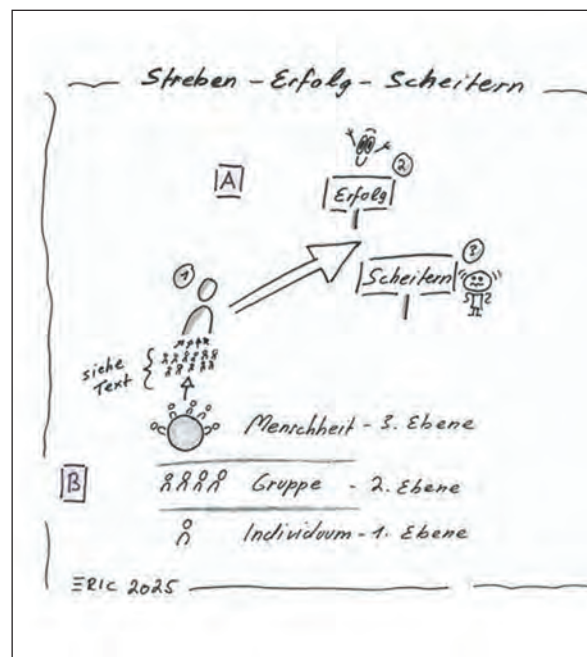 Streben - Erfolg - Scheitern
A
2
Erfolg
3
Scheitern
1
siehe
Text
Menschheit - 3. Ebene
B
Gruppe - 2. Ebene
Individuum - 1. Ebene
ERIC 2025